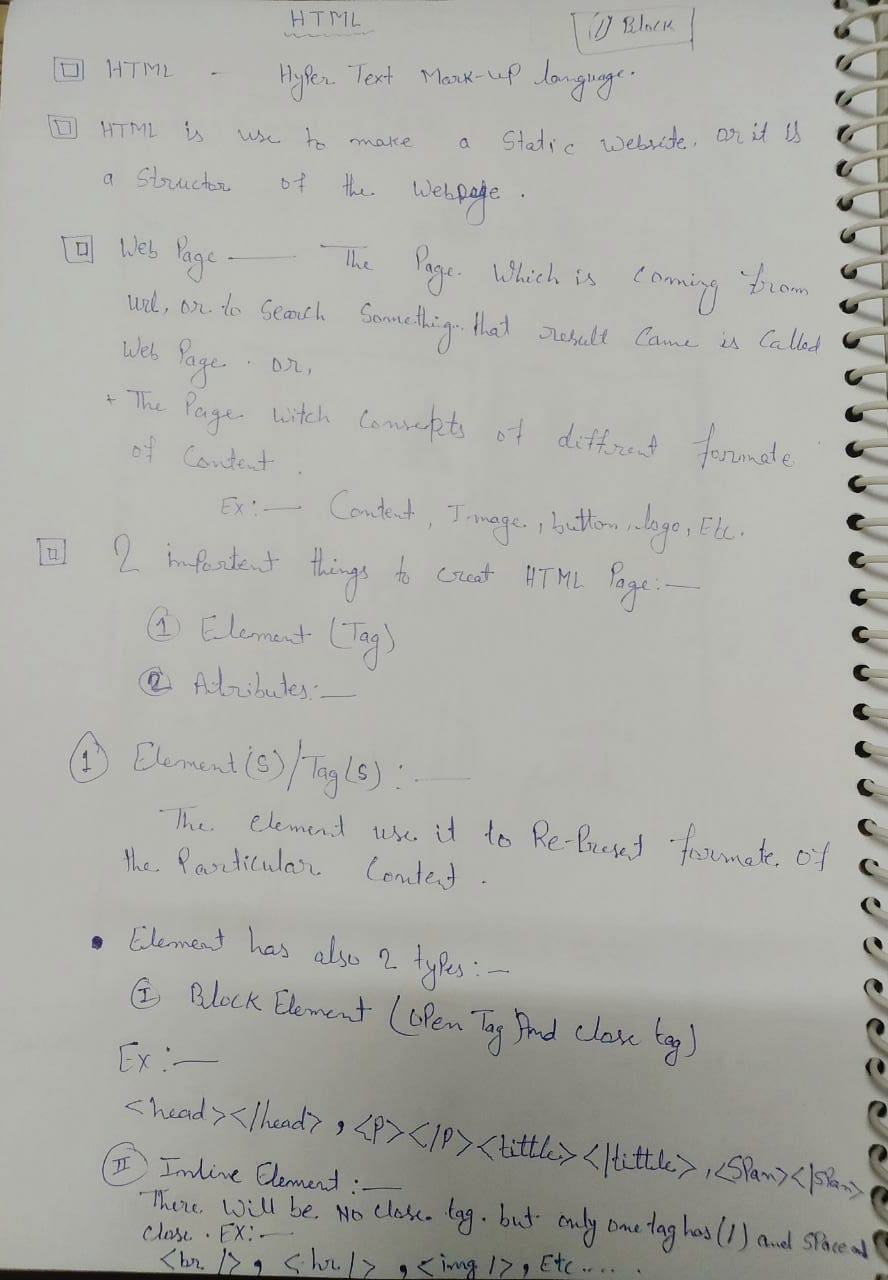 HTML
1) Block
HTML - Hyper Text Mark-up language.
HTML is use to make a Static website. or it is
a Structor of the Webpage.
Web Page — The Page. Which is coming from
url, or to Search Something. that result Came is Called
Web Page. or,
+ The Page witch of different formate
of Content.
Ex:— Content, Image, button, logo, Etc.
2 importent things to creat HTML Page:—
1 Element (Tag)
2 Atributes:—
1 Element(s)/Tag(s):—
The element use it to Re-Present formate of
the Particular Content.
• Element has also 2 types:—
I Block Element (open Tag And close tag)
Ex:—
<head></head>, <P></P><tittle></tittle>, <Span></Span>
II Inline Element:—
There will be No close tag. but only one tag has (/) and Space and
close. EX:—
<br />, <hr />, <img />, Etc.....